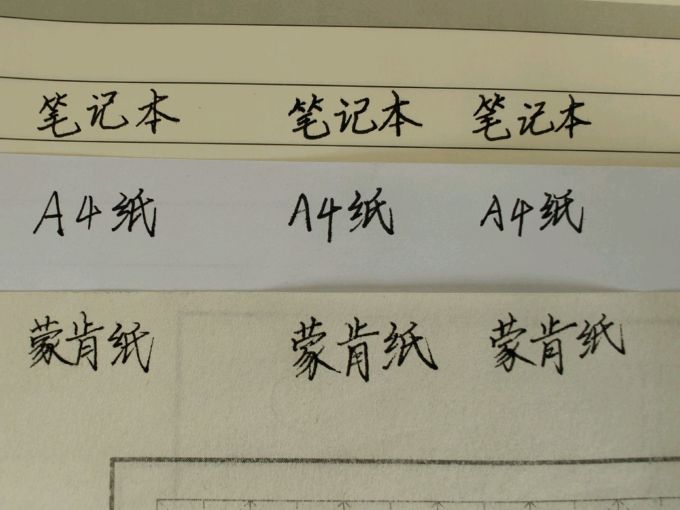 笔记本 笔记本 笔记本
A4纸 A4纸 A4纸
蒙肯纸 蒙肯纸 蒙肯纸